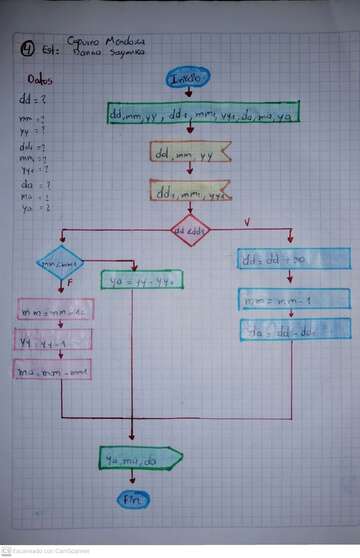 4 Est: Capurro Mendoza
Danna Saymika
Datos
dd = ?
mm = ?
yy = ?
dd1 = ?
mm1 = ?
yy1 = ?
da = ?
ma = ?
ya = ?
Inicio
dd, mm, yy, dd1, mm1, yy1, da, ma, ya
dd, mm, yy
dd1, mm1, yy1
dd < dd1
V
mm < mm1
F
ya = yy - yy1
dd = dd + 30
mm = mm - 1
da = dd - dd1
yy = yy - 1
ma = mm - mm1
ya, ma, da
Fin
Escaneado con CamScanner